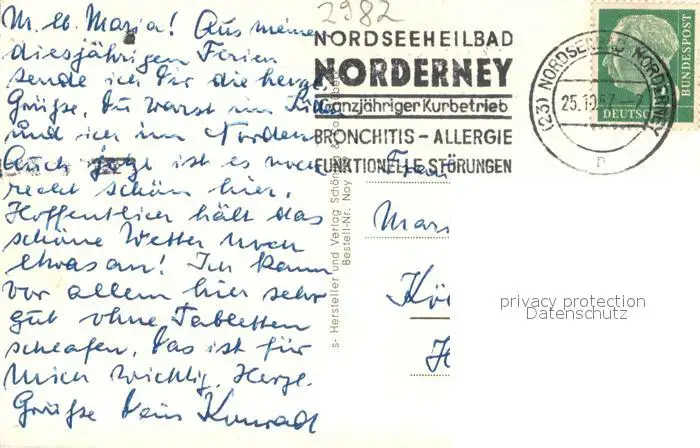 2982
M. lb. Maria! Aus meinem
diesjährigen Ferien
sende ich Dir die herzl.
Grüße. Du warst im Süden
und ich im Norden
Auch jetzt ist es noch
recht schön hier.
Hoffentlich hält das
schöne Wetter noch
etwas an! Ich kann
vor allem hier sehr
gut ohne Tabletten
schlafen. Das ist für
mich wichtig. Herzl.
Grüße Dein Konrad
NORDSEEHEILBAD
NORDERNEY
Ganzjähriger Kurbetrieb
BRONCHITIS - ALLERGIE
FUNKTIONELLE STÖRUNGEN
(23) NORDSEEBAD NORDERNEY
25.10.57
DEUTSCHE
BUNDESPOST
s- Hersteller und Verlag Schön
Bestell-Nr. Noy
Frau
Mari
Kö
H
privacy protection
Datenschutz